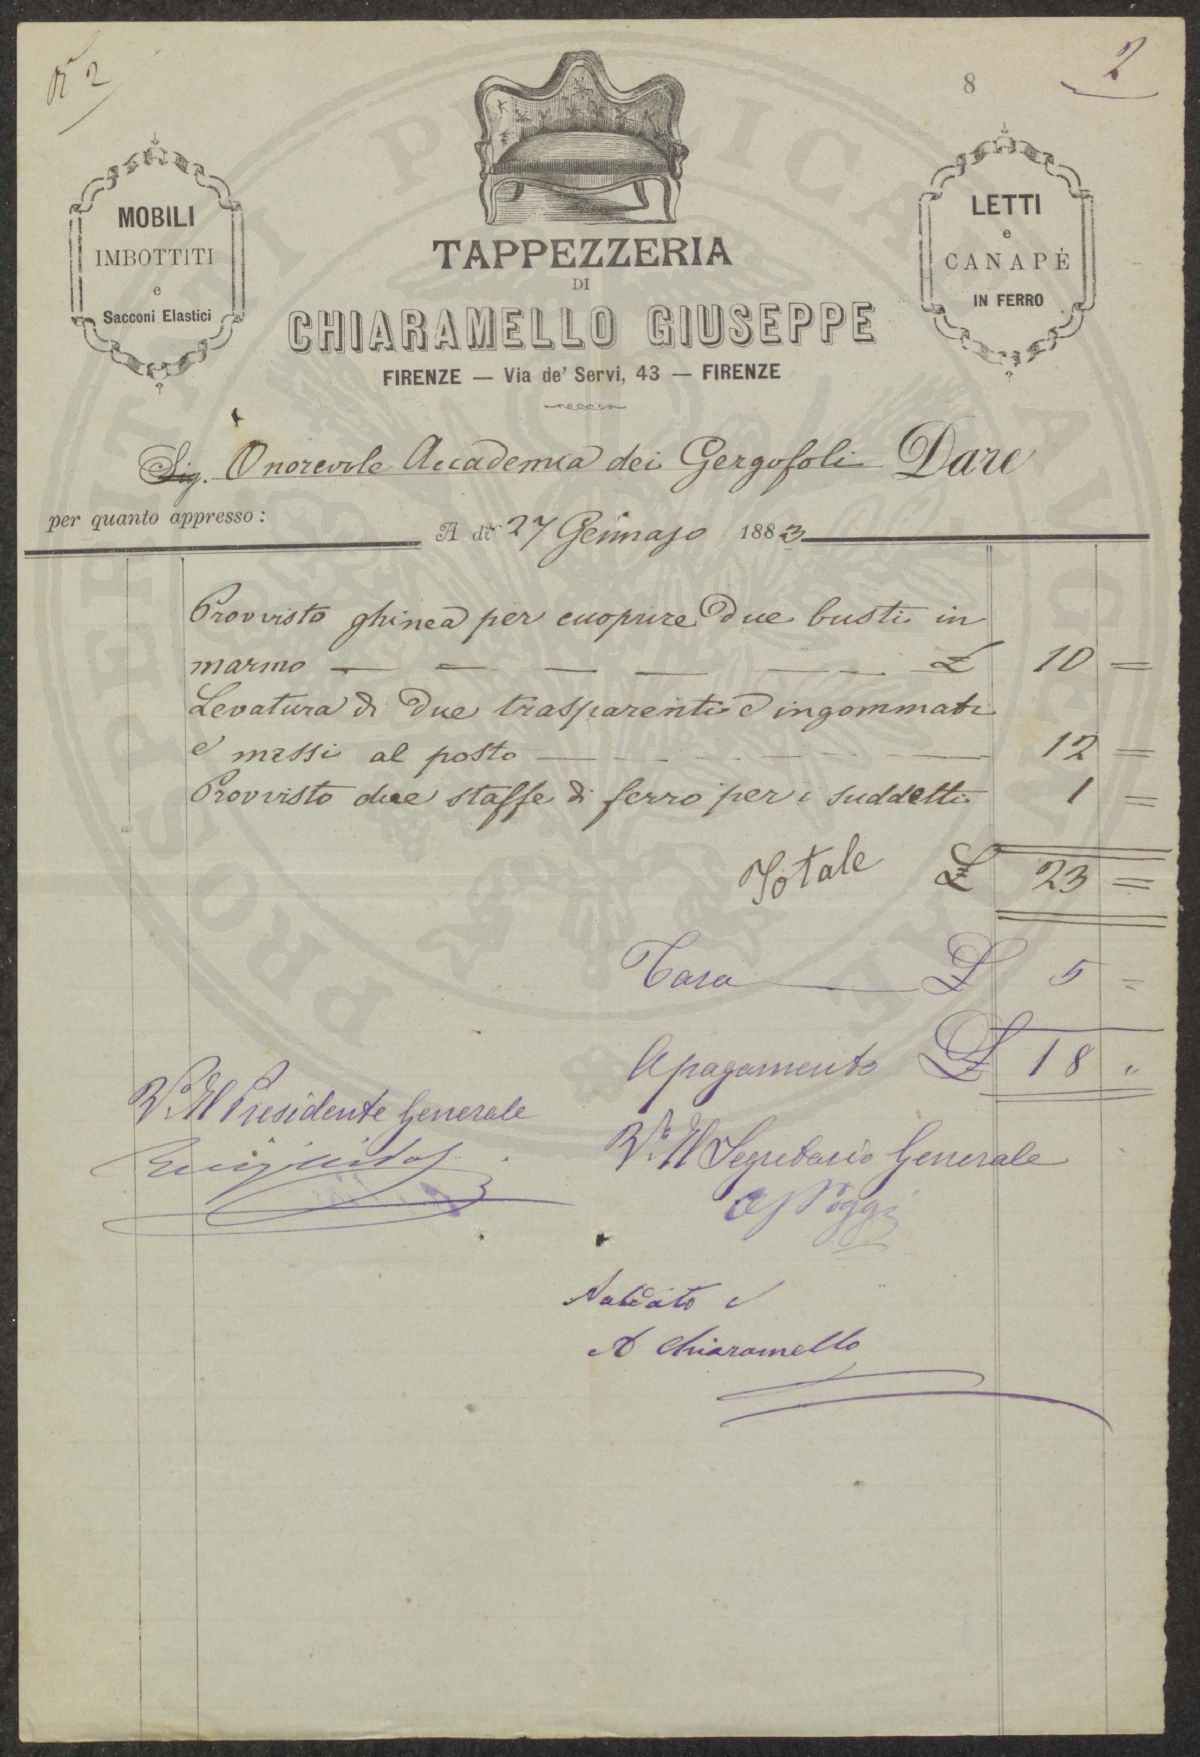 N° 2
2
8
MOBILI
IMBOTTITI
e
Sacconi Elastici
LETTI
e
CANAPÈ
IN FERRO
TAPPEZZERIA
DI
CHIARAMELLO GIUSEPPE
FIRENZE — Via de' Servi, 43 — FIRENZE
Sig. Onorevole Accademia dei Gergofoli Dare
per quanto appresso:
A dì 27 Gennajo 1883
Provvisto ghinea per cuoprire due busti in
marmo — — — — — — £ 10 =
Levatura di due trasparenti e ingommati
e messi al posto — — — — — 12 =
Provvisto due staffe di ferro per i suddetti 1 =
Totale £ 23 =
Tara £ 5 =
A pagamento £ 18 "
V° Il Presidente Generale
V° Il Segretario Generale
Poggi
Saldato
A Chiaramello
PROSPERITATI PUBLICAE AUGENDAE